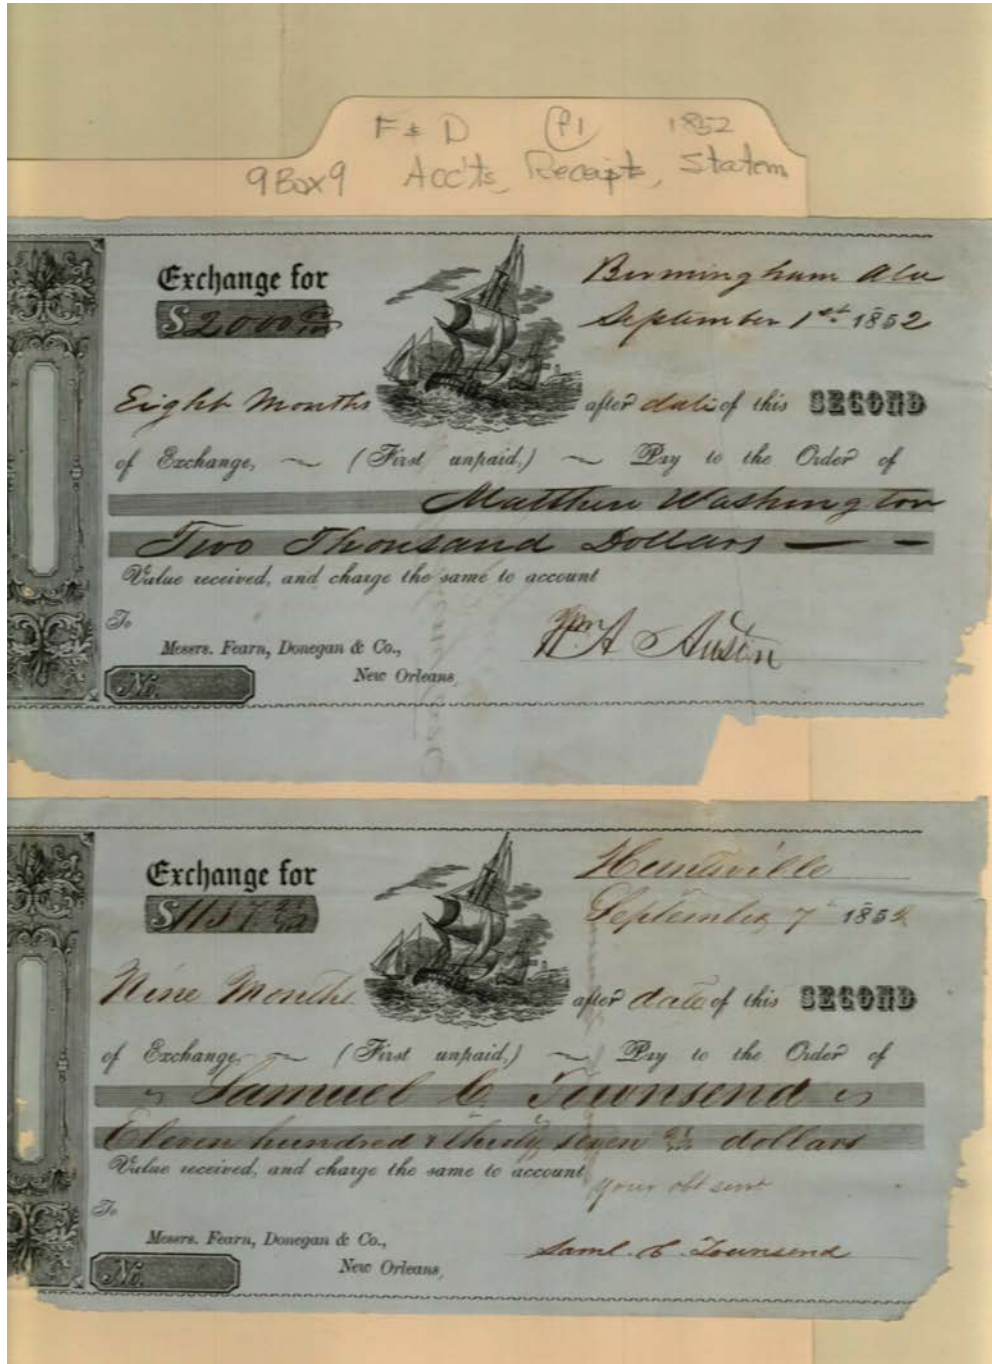 F & D P1 1852
9 Box 9 Acc'ts, Receipts, Statem
Exchange for
Birmingham Ala
$2000
September 1st 1852
Eight Months after date of this SECOND
of Exchange, (First unpaid,) Pay to the Order of
Matthew Washington
Two Thousand Dollars
Value received, and charge the same to account
To
Wm A Austin
Messrs. Fearn, Donegan & Co.,
New Orleans,
No.
Exchange for
Huntsville
$1137
September 7 1852
Nine Months after date of this SECOND
of Exchange, (First unpaid,) Pay to the Order of
Samuel C Townsend
Eleven hundred & thirty seven dollars
Value received, and charge the same to account
your obt servt
To
Messrs. Fearn, Donegan & Co.,
Saml. C. Townsend
New Orleans,
No.